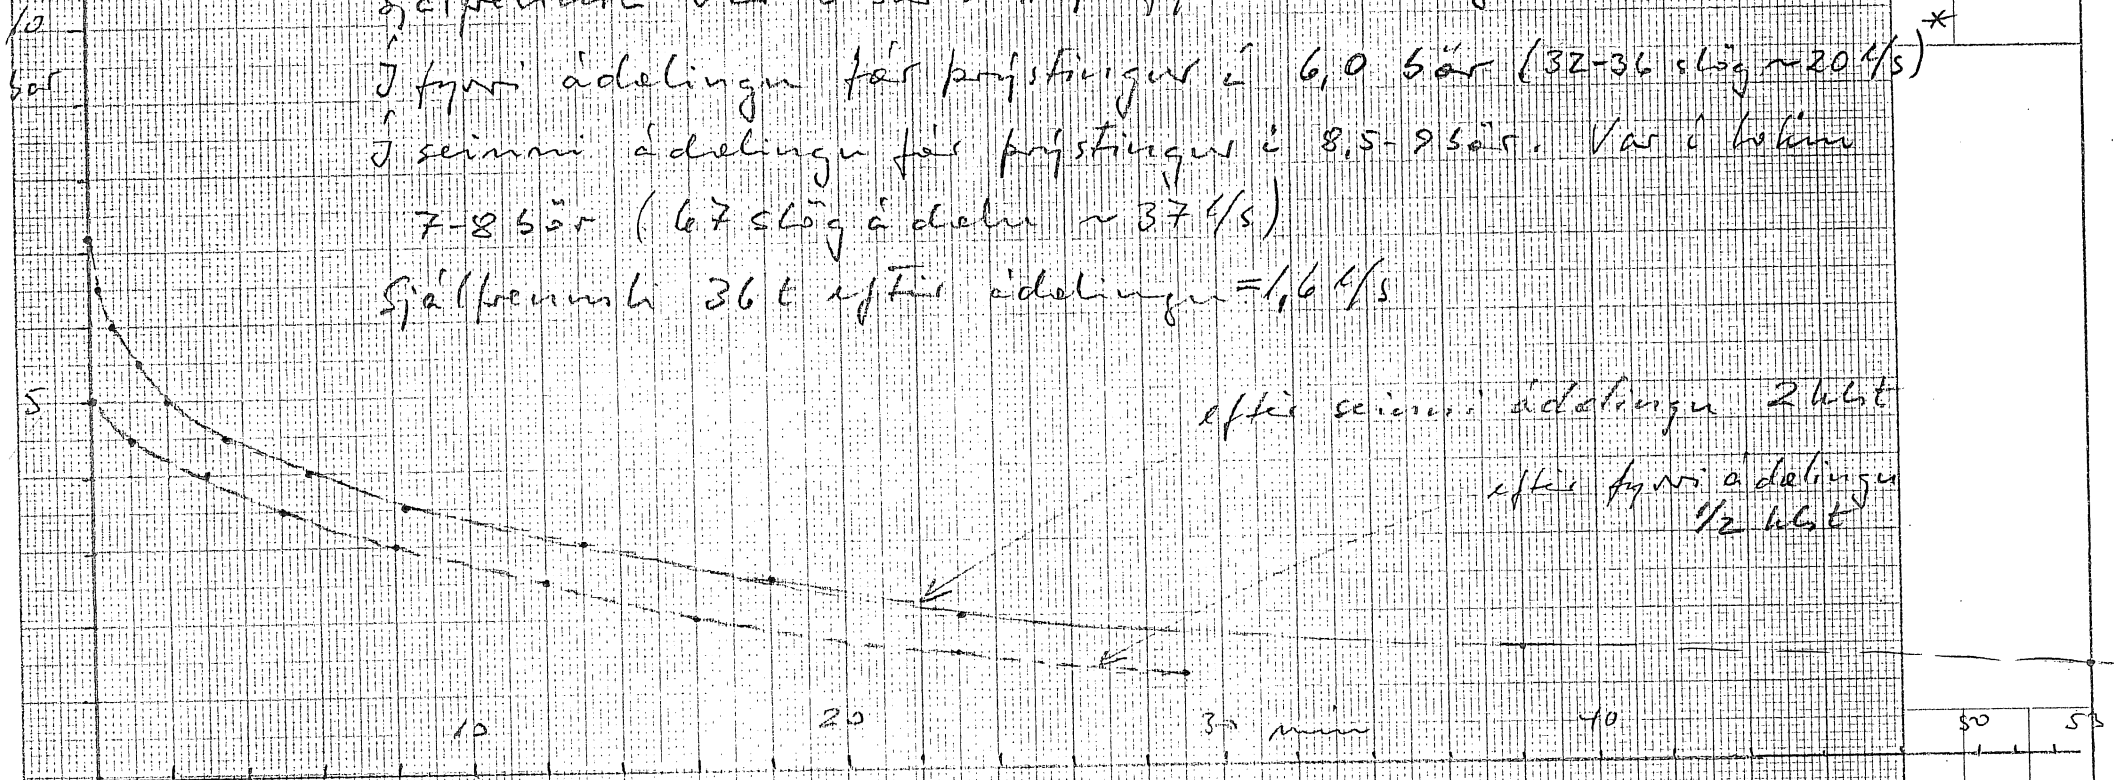 10
bar
Í fyrri ádælingu fór þrýstingur í 6,0 bör (32-36 slög ~20 l/s)*
Í seinni ádælingu fór þrýstingur í 8,5-9 bör. Var í lokin
7-8 bör (67 slög á dælu ~ 37 l/s)
Sjálfrennsli 36 t eftir ádælingu = 1,6 l/s
5
eftir seinni ádælingu 2 klst
eftir fyrri ádælingu
1/2 klst
10 20 30 mín 40 50 53